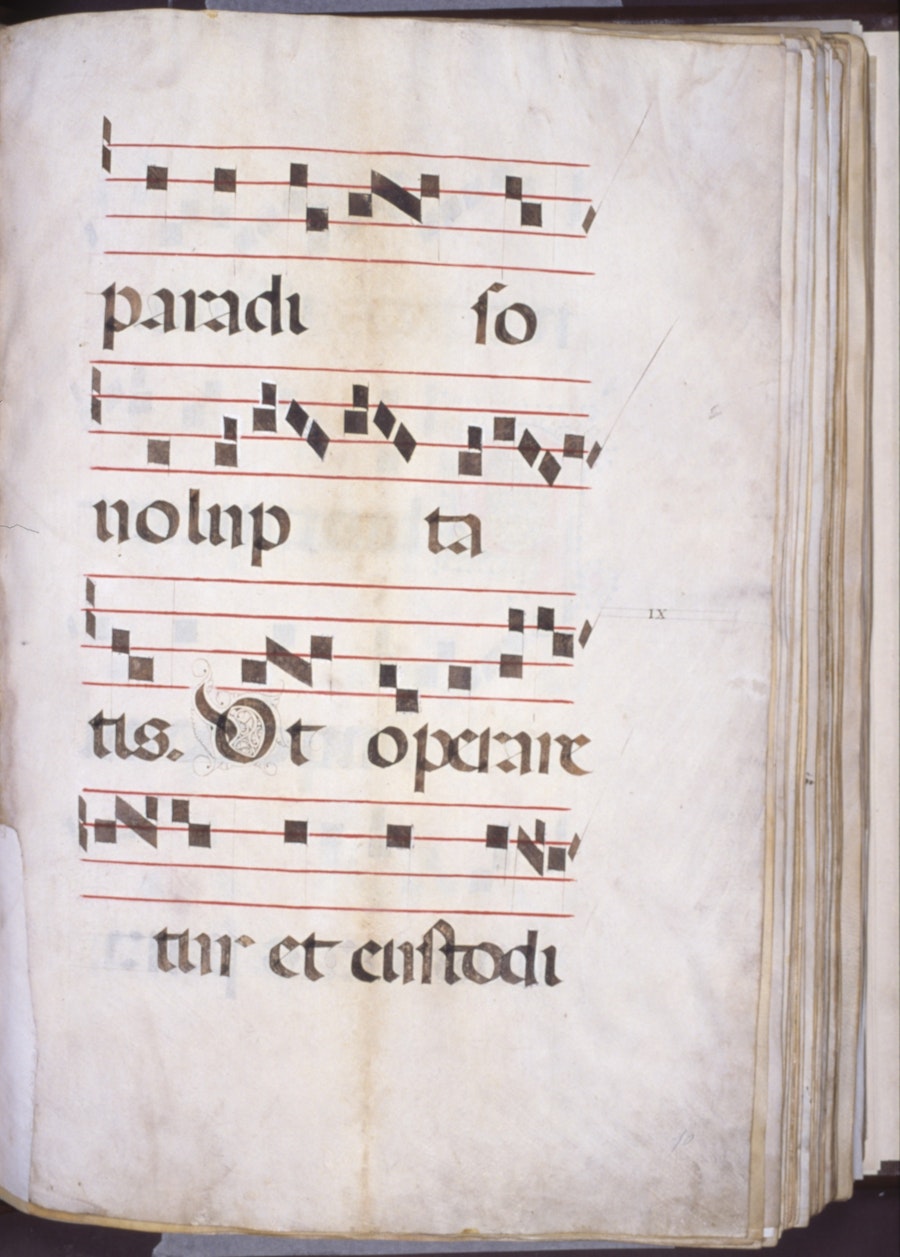 paradi ſo
uolup ta
tis. Ut operare
IX
tur et cuſtodi